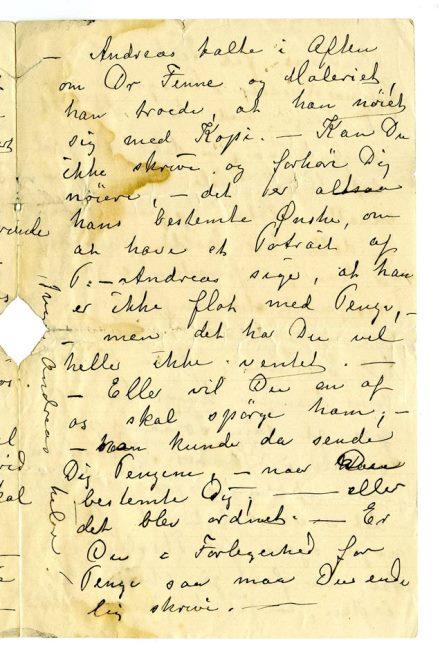 — Andreas talte i Aften
om Dr Fenne og Maleriet,
han troede, at han nøiet
sig med Kopi. — Kan Du
ikke skrive og forhøre Dig
nøiere, — det er altsaa
hans bestemte Ønske, om
at have et Potrait af
P: — Andreas siger, at han
er ikke flot med Penge, —
— men det har Du vel
heller ikke ventet. —
— Eller vil Du en af
os skal spørge ham; —
— han kunde da sende
Dig Pengene, — naar Du
bestemte Dig, — eller
det blev ordnet. — Er
Du i Forlegenhed for
Penge saa maa Du ende
lig skrive. —
Andreas hilser!